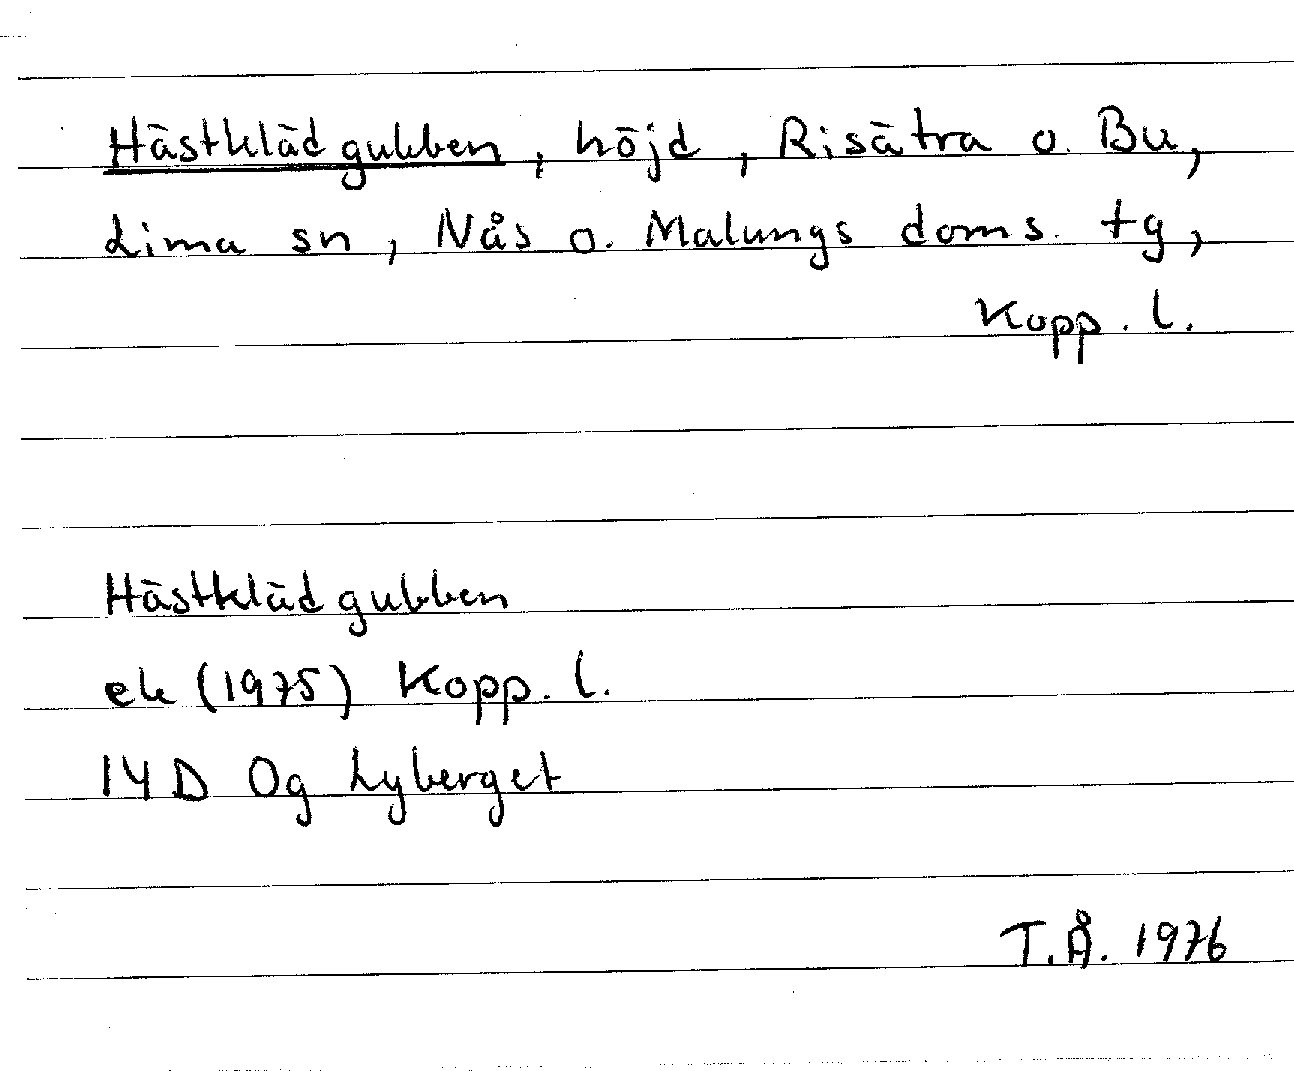 Hästklädgubben, höjd, Risätra o. Bu,
Lima sn, Nås o. Malungs doms. tg,
Kopp. l.
Hästklädgubben
ek (1975) Kopp. l.
14D Og Lyberget
T.Å. 1976